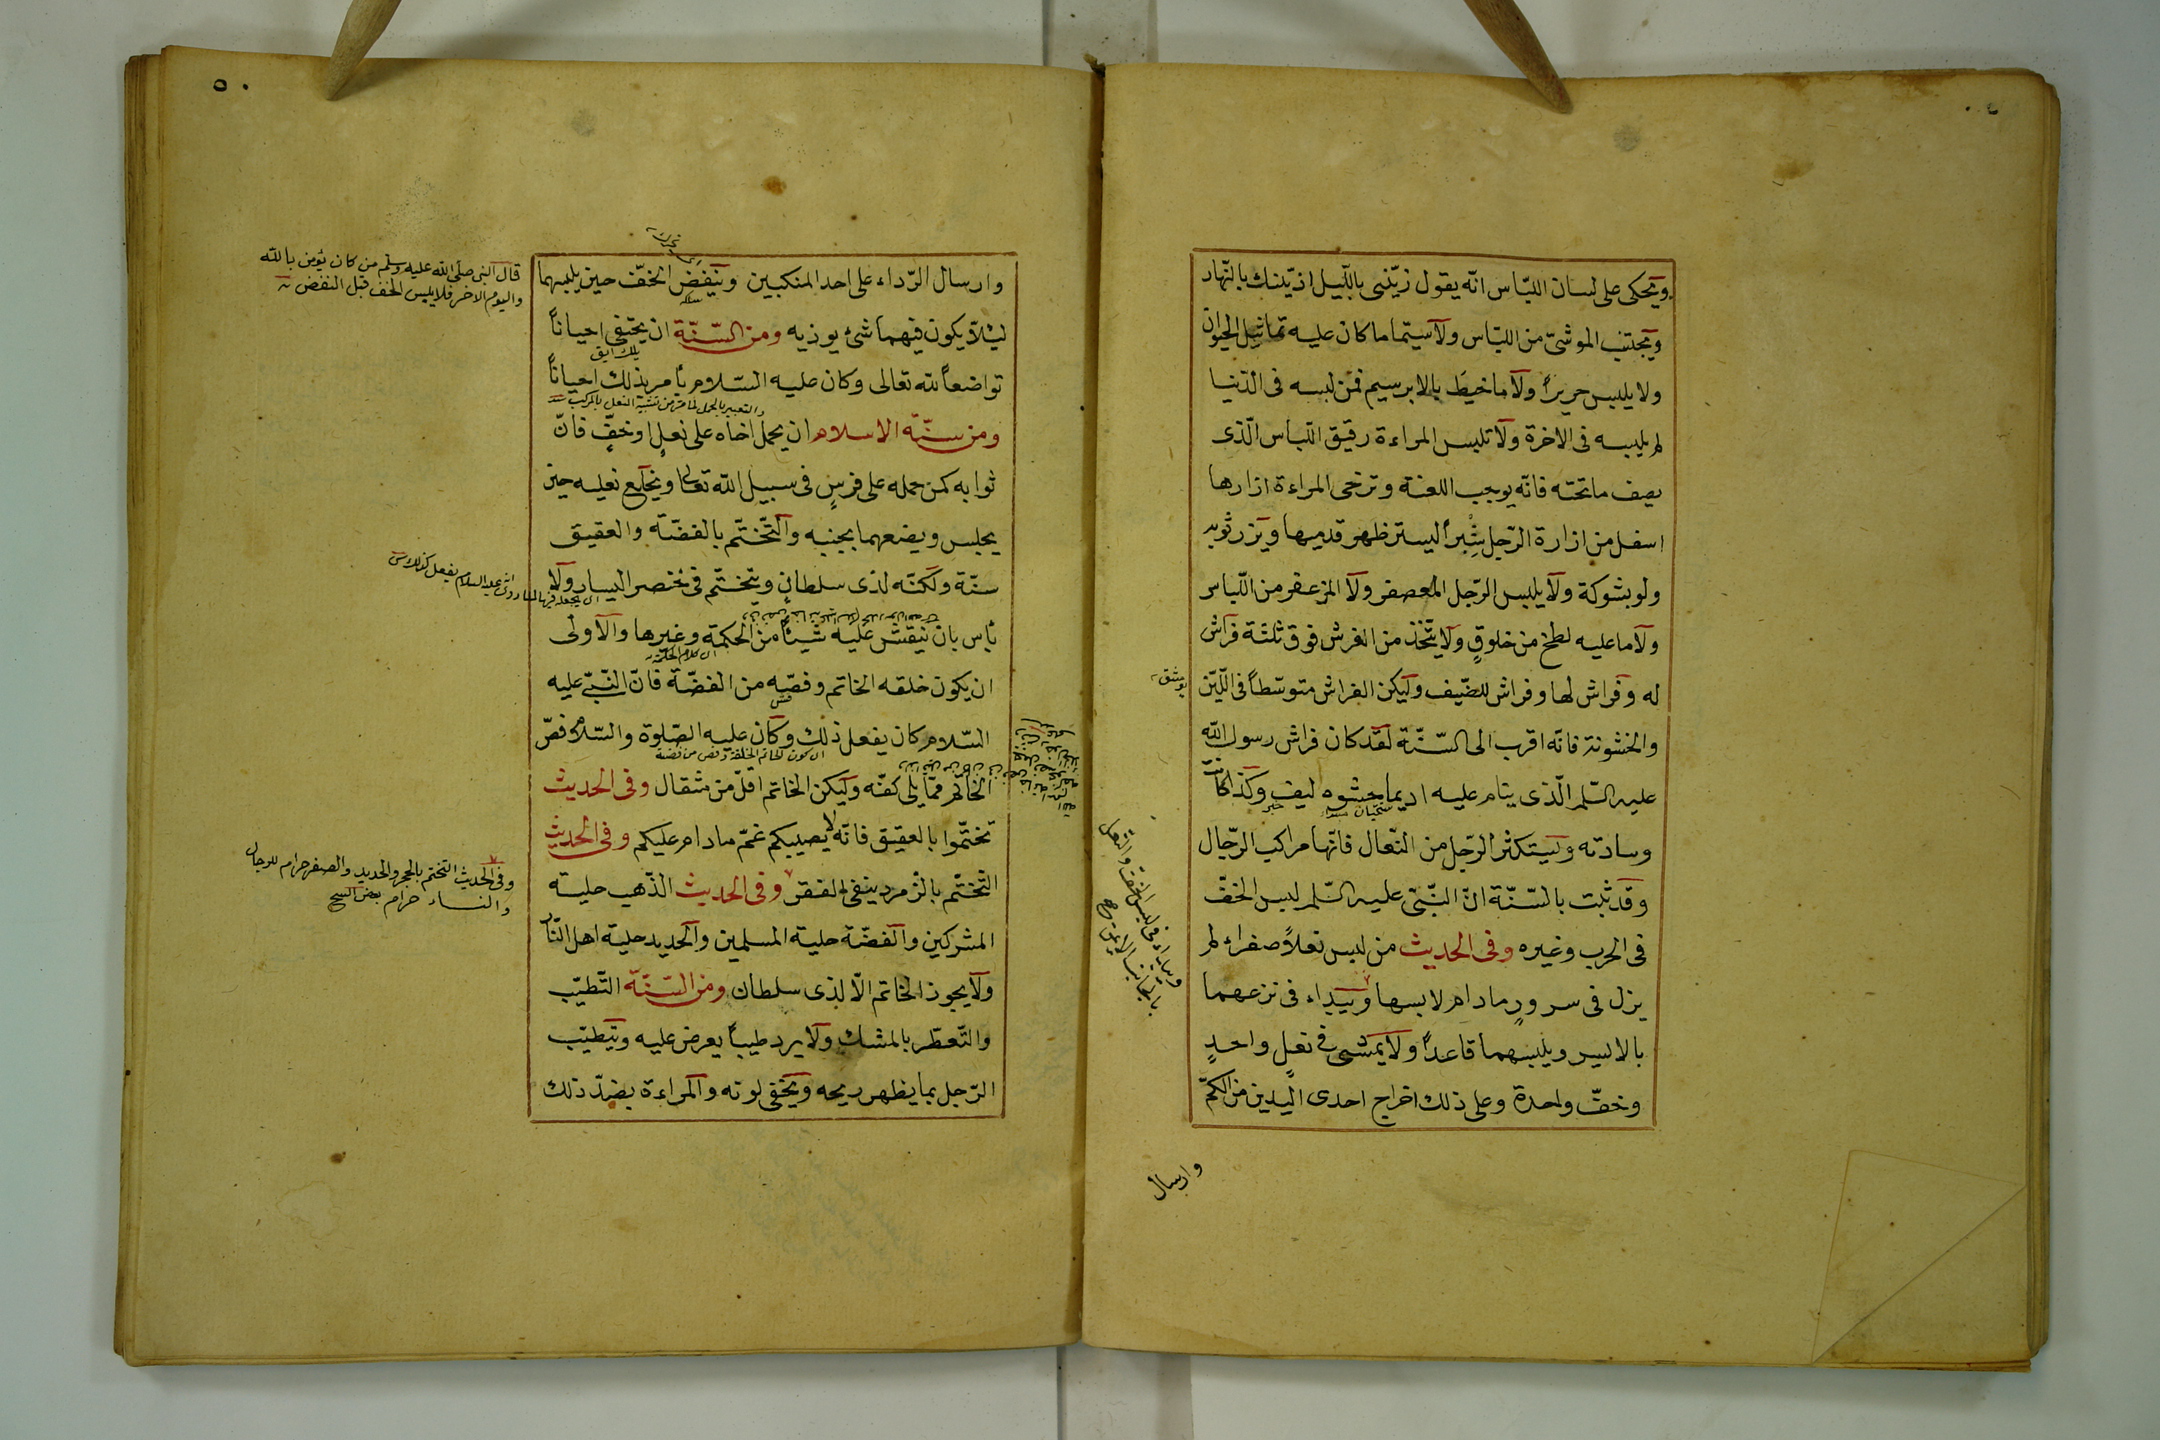 ويحكى على لسان اللباس انه يقول زيّنى بالليل ازيّنك بالنهار
ويجتنب الموشىّ من اللباس ولا سيّما ما كان عليه تماثيل الحيوان
ولا يلبس حريراً ولا ما خيط بالابرسيم فمن لبسه فى الدّنيا
لم يلبسه فى الاخرة ولا تلبس المراءة رقيق اللّباس الّذى
يصف ما تحته فانّه يوجب اللعنة وترخى المراءة ازارها
اسفل من ازارة الرّجل شِبراً ليستر ظهر قدميها ويزر ثوبه
ولو بشوكة ولا يلبس الرّجل المعصفر ولا المزعفر من اللّباس
ولا ما عليه لطخ من خلوقٍ ولا يتّخذ من الفرش فوق ثلثة فراش
له وفراش لها وفراش للضّيف وليكن الفراش متوسّطاً فى اللّين
والخشونة فانّه اقرب الى السّنّة لقد كان فراش رسول الله
عليه السّلم الّذى ينام عليه اديما بحشوه ليف وكذا كانت
وسادته وليستكثر الرّجل من النّعال فانّها مراكب الرّجال
وقد ثبت بالسّنّة انّ النّبّى عليه السّلم لبس الخفّ
فى الحرب وغيره وفى الحديث من لبس نعلاً صفراء لم
يزل فى سرورٍ ما دام لابسها ويبداء فى نزعهما
بالايسر ويلبسهما قاعداً ولا يمشى فى نعلٍ واحدٍ
وخفّ واحدة وعلى ذلك اخراج احدى اليدين من الكمّ
وارسال
وارسال الرّداء على احد المنكبين وينفض الخفّ حين يلبسهما
لئلاّ يكون فيهما شئ يوذيه ومن السّنّة ان يحتفى احياناً
تواضعاً لله تعالى وكان عليه السّلام يأمر بذلك احياناً
ومن سنّة الاسلام ان يحمل اخاه على نعلٍ او خفٍّ فانّ
ثوابه كمن حمله على فرسٍ فى سبيل الله تعالى ويخلع نعليه حين
يجلس ويضعهما بجنبه والتّختّم بالفضّة والعقيق
سنّة ولكنّه لذى سلطانٍ ويتختّم فى خنصر اليسار ولا
بأس بان ينقش عليه شيئاً من الحكمة وغيرها والاولى
ان يكون حلقه الخاتم وفصّه من الفضّة فانّ النّبىّ عليه
السّلام كان يفعل ذلك وكان عليه الصّلوة والسّلام فصّ
الخاتم ممّا يلى كفّه وليكن الخاتم اقلّ من مثقال وفى الحديث
تختّموا بالعقيق فانّه لا يصيبكم غمّ ما دام عليكم وفى الحديث
التّختّم بالزمرد ينفى الفقر وفى الحديث الذّهب حلية
المشركين والفضّة حلية المسلمين والحديد حلية اهل النّار
ولا يجوز الخاتم الّا لذى سلطان ومن السّنّة التّطيّب
والتّعطّر بالمشك ولا يرد طيباً يعرض عليه ويتطيّب
الرّجل بما يظهر ريحه ويخفى لونه والمراءة بضدّ ذلك
قال النبى صلّى الله عليه وسلم من كان يؤمن بالله
واليوم الاخر فلا يلبس الخف قبل النفض
وفى الحديث التختم بالحجر والحديد والصفر حرام للرجال
والنساء حرام
٥٠